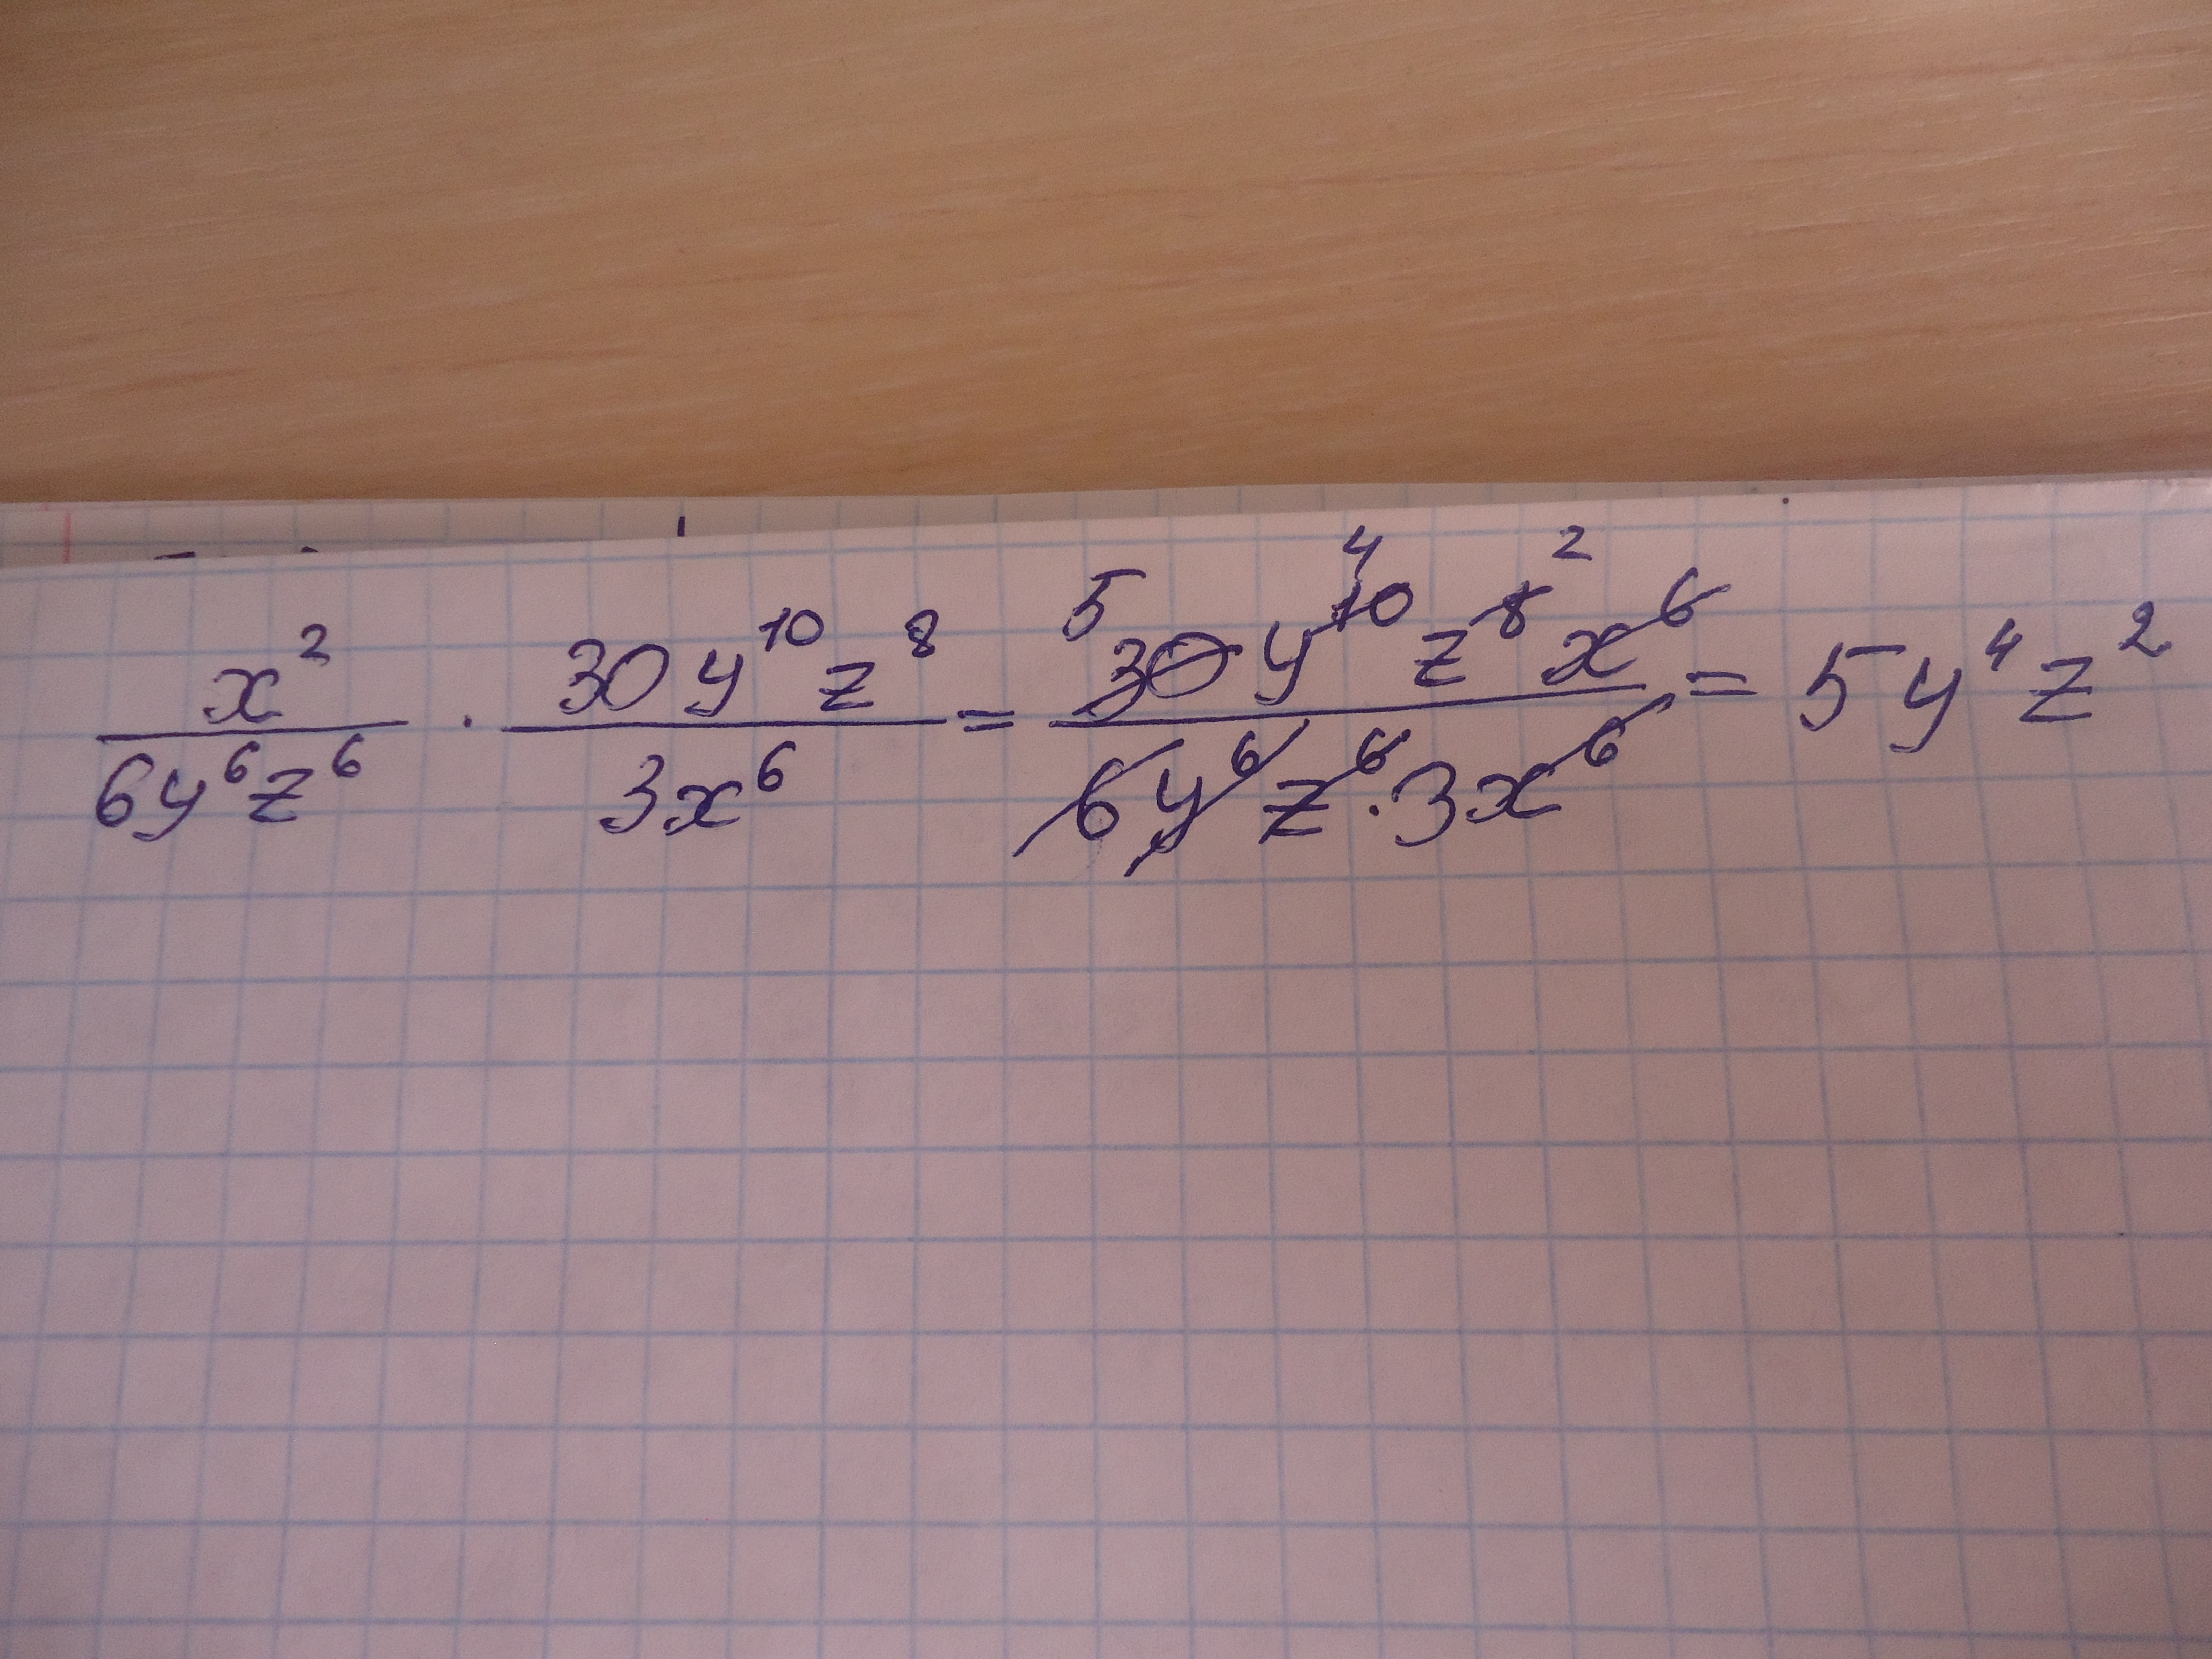 x²/(6y⁶z⁶) · 30y¹⁰z⁸/(3x⁶) = 5 30y¹⁰ ⁴ z⁸ ² x⁶/(6y⁶z⁶·3x⁶) = 5y⁴z²